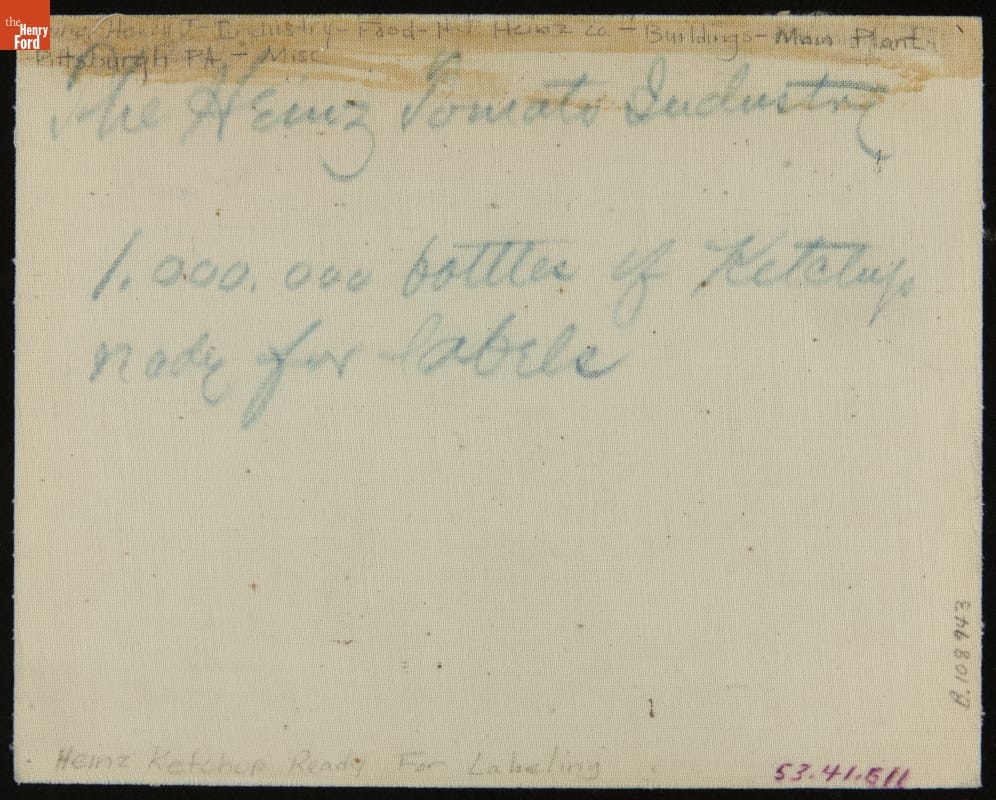 the
Henry
Ford
Henry J - Industry - Food - H.J. Heinz Co. - Buildings - Main Plant
Pittsburgh PA. - Misc
The Heinz Tomato Industry
1.000.000 bottles of Ketchup
ready for labels
Heinz Ketchup Ready For Labeling
53.41.511